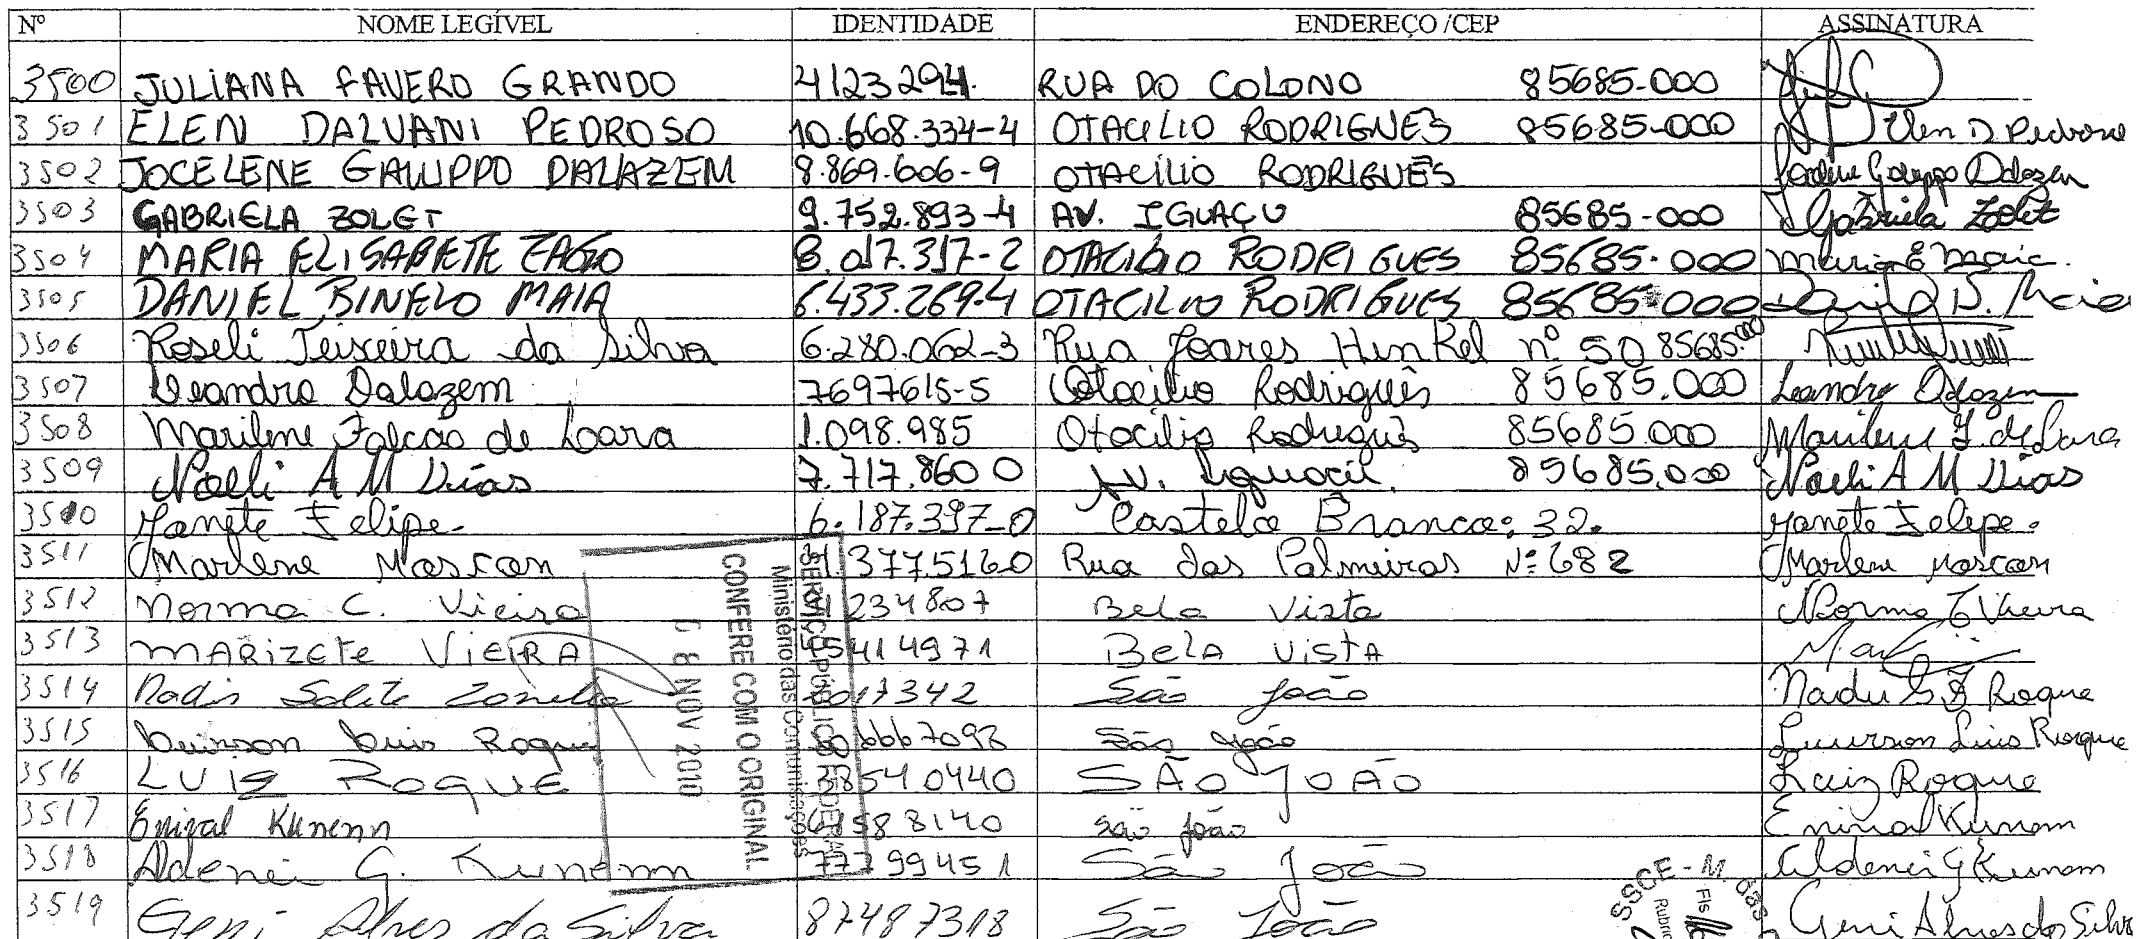 Nº NOME LEGÍVEL IDENTIDADE ENDEREÇO /CEP ASSINATURA
3500 JULIANA FAVERO GRANDO 4123294. RUA DO COLONO 85685-000
3501 ELEN DALVANI PEDROSO 10.668.334-4 OTACILIO RODRIGUES 85685-000 Elen D Pedroso
3502 JOCELENE GALUPPO DALAZEM 8.869.606-9 OTACÍLIO RODRIGUES
3503 GABRIELA ZOLET 9.752.893-4 AV. IGUAÇU 85685-000 Gabriela Zolet
3504 MARIA ELISABETE ZAGO 8.017.317-2 OTACILIO RODRIGUES 85685-000 Maria E
3505 DANIEL BINELO MAIA 6.433.269-4 OTACILIO RODRIGUES 85685-000 Daniel B. Maia
3506 Roseli Teixeira da Silva 6.280.062-3 Rua Joares Hinkel nº 50 85685.000
3507 Leandro Dalazem 7697615-5 Otacilio Rodrigues 85685.000 Leandro Dalazem
3508 Marilene Falcão de Loara 1.098.985 Otacilio Rodrigues 85685.000 Marilene F. de
3509 Noeli A M Dias 7.717.860 0 Av. Iguaçu. 85685.000 Noeli A M Dias
3510 Janete Felipe. 6.187.397-0 Castelo Branco: 32. Janete Felipe.
3511 Marlene Mascan 377.5160 Rua das Palmeiras Nº 682 Marlene Mascan
3512 Norma C. Vieira 234807 Bela Vista Norma C Vieira
3513 MARIZETE VIEIRA 5414971 BELA VISTA
3514 Nadir Salete 17342 São João Roque
3515 Luis Roque 6667093 São João Luis Roque
3516 LUIZ ROQUE 38540440 SÃO JOÃO Luiz Roque
3517 Kunenn 61588140 São João
3518 Adenei G. Kunenn 77799451 São João G Kunenn
3519 Geni Alves da Silva 87487318 São João Geni Alves da Silva
SERVIÇO PÚBLICO FEDERAL
Ministério das Comunicações
CONFERE COM O ORIGINAL
0 8 NOV 2010
SSCE - M. das
Fls